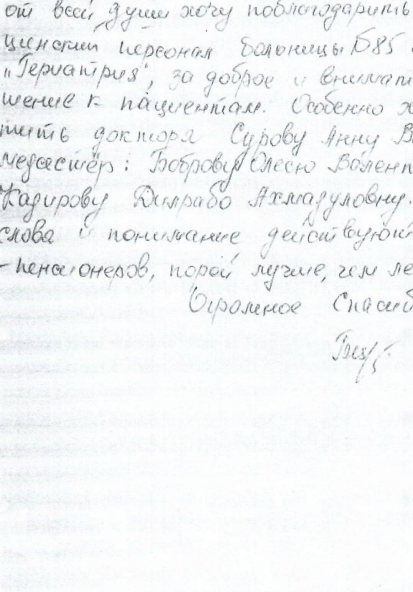 от всей души хочу поблагодарить
цинский персонал больницы №85
„Гериатрия", за доброе и внимат
шение к пациентам. Особенно х
тить доктора Сурову Анну В
медсестёр: Боброву Олесю Валент
Кадирову Дилрабо Ахмадуловну.
слова и понимание действуют
-пенсионеров, порой лучше, чем ле
Огромное Спасиб